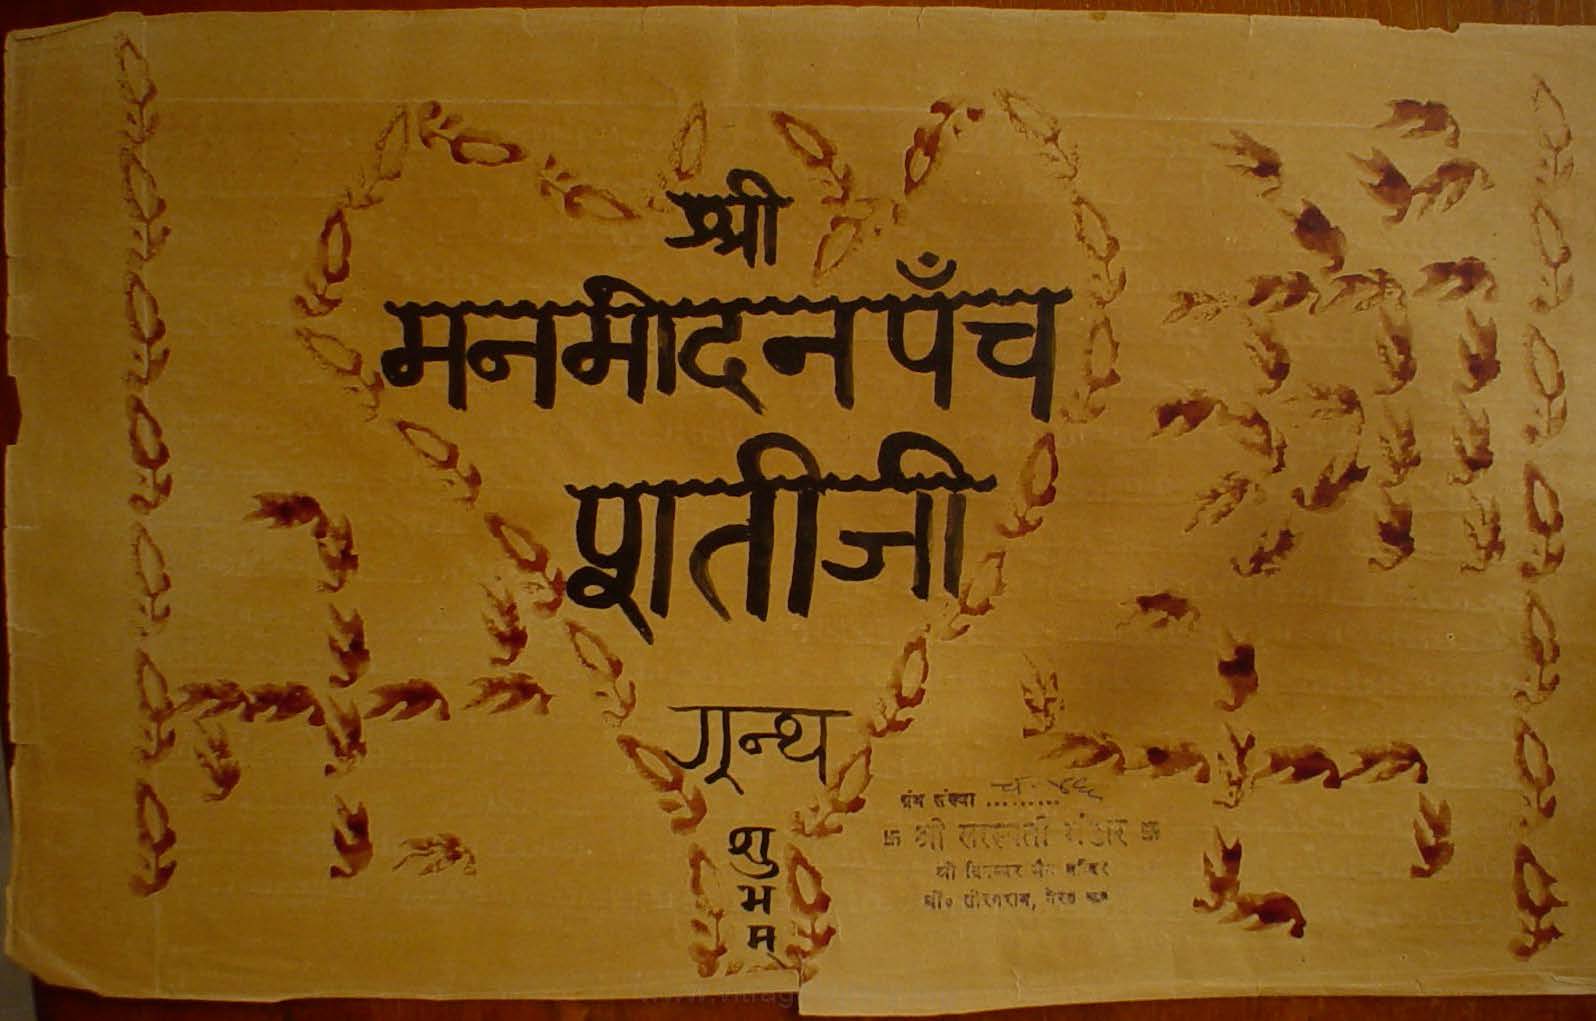 श्री
मनमोदन पँच
शतीजी
ग्रन्थ
शुभम्
ग्रंथ संख्या .........
卐 श्री सरस्वती भंडार 卐
श्री दिगम्बर जैन मन्दिर